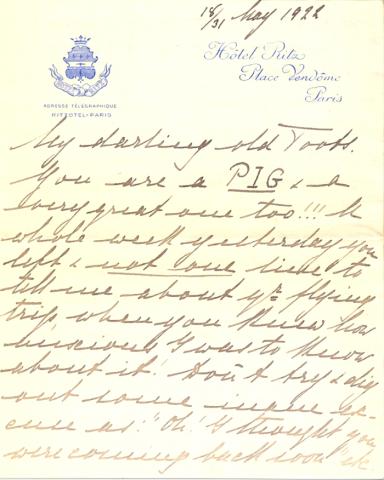 18/31 May 1922
Hôtel Ritz
Place Vendôme
Paris
ADRESSE TÉLÉGRAPHIQUE
RITZOTEL-PARIS
My darling old Toots.
You are a PIG & a
very great one too!!! A
whole week yesterday you
left & not one line to
tell me about yr flying
trip, when you knew how
anxious I was to know
about it! Don't try & dig
out some inane ex-
cuse as: "Oh! I thought you
were coming back soon" etc.